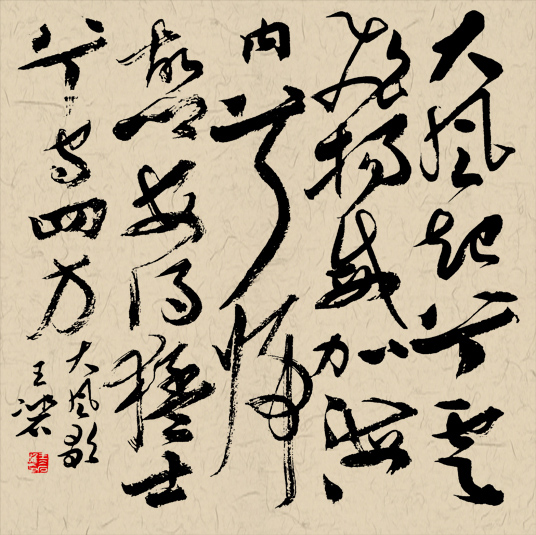 大風起兮雲
飛揚威加海
内兮歸
故鄉安得猛士
兮守四方
大風歌
王